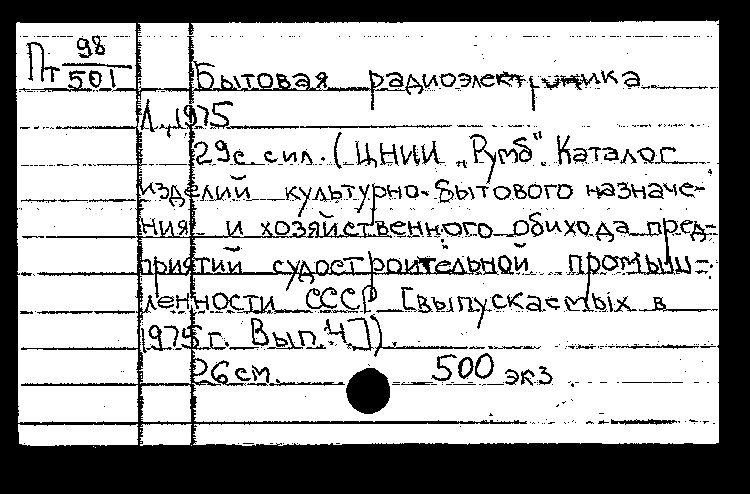 Пт 98/501
Бытовая радиоэлектроника
Л., 1975
29с. с ил. (ЦНИИ „Румб". Каталог
изделий культурно-бытового назначе-
ния и хозяйственного обихода пред-
приятий судостроительной промыш-
ленности СССР [выпускаемых в
1975 г. Вып. 4]).
26 см. 500 экз